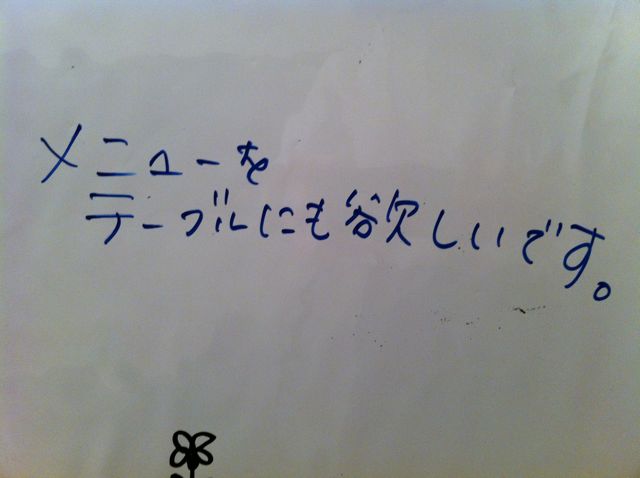 メニューを
テーブルにも欲しいです。